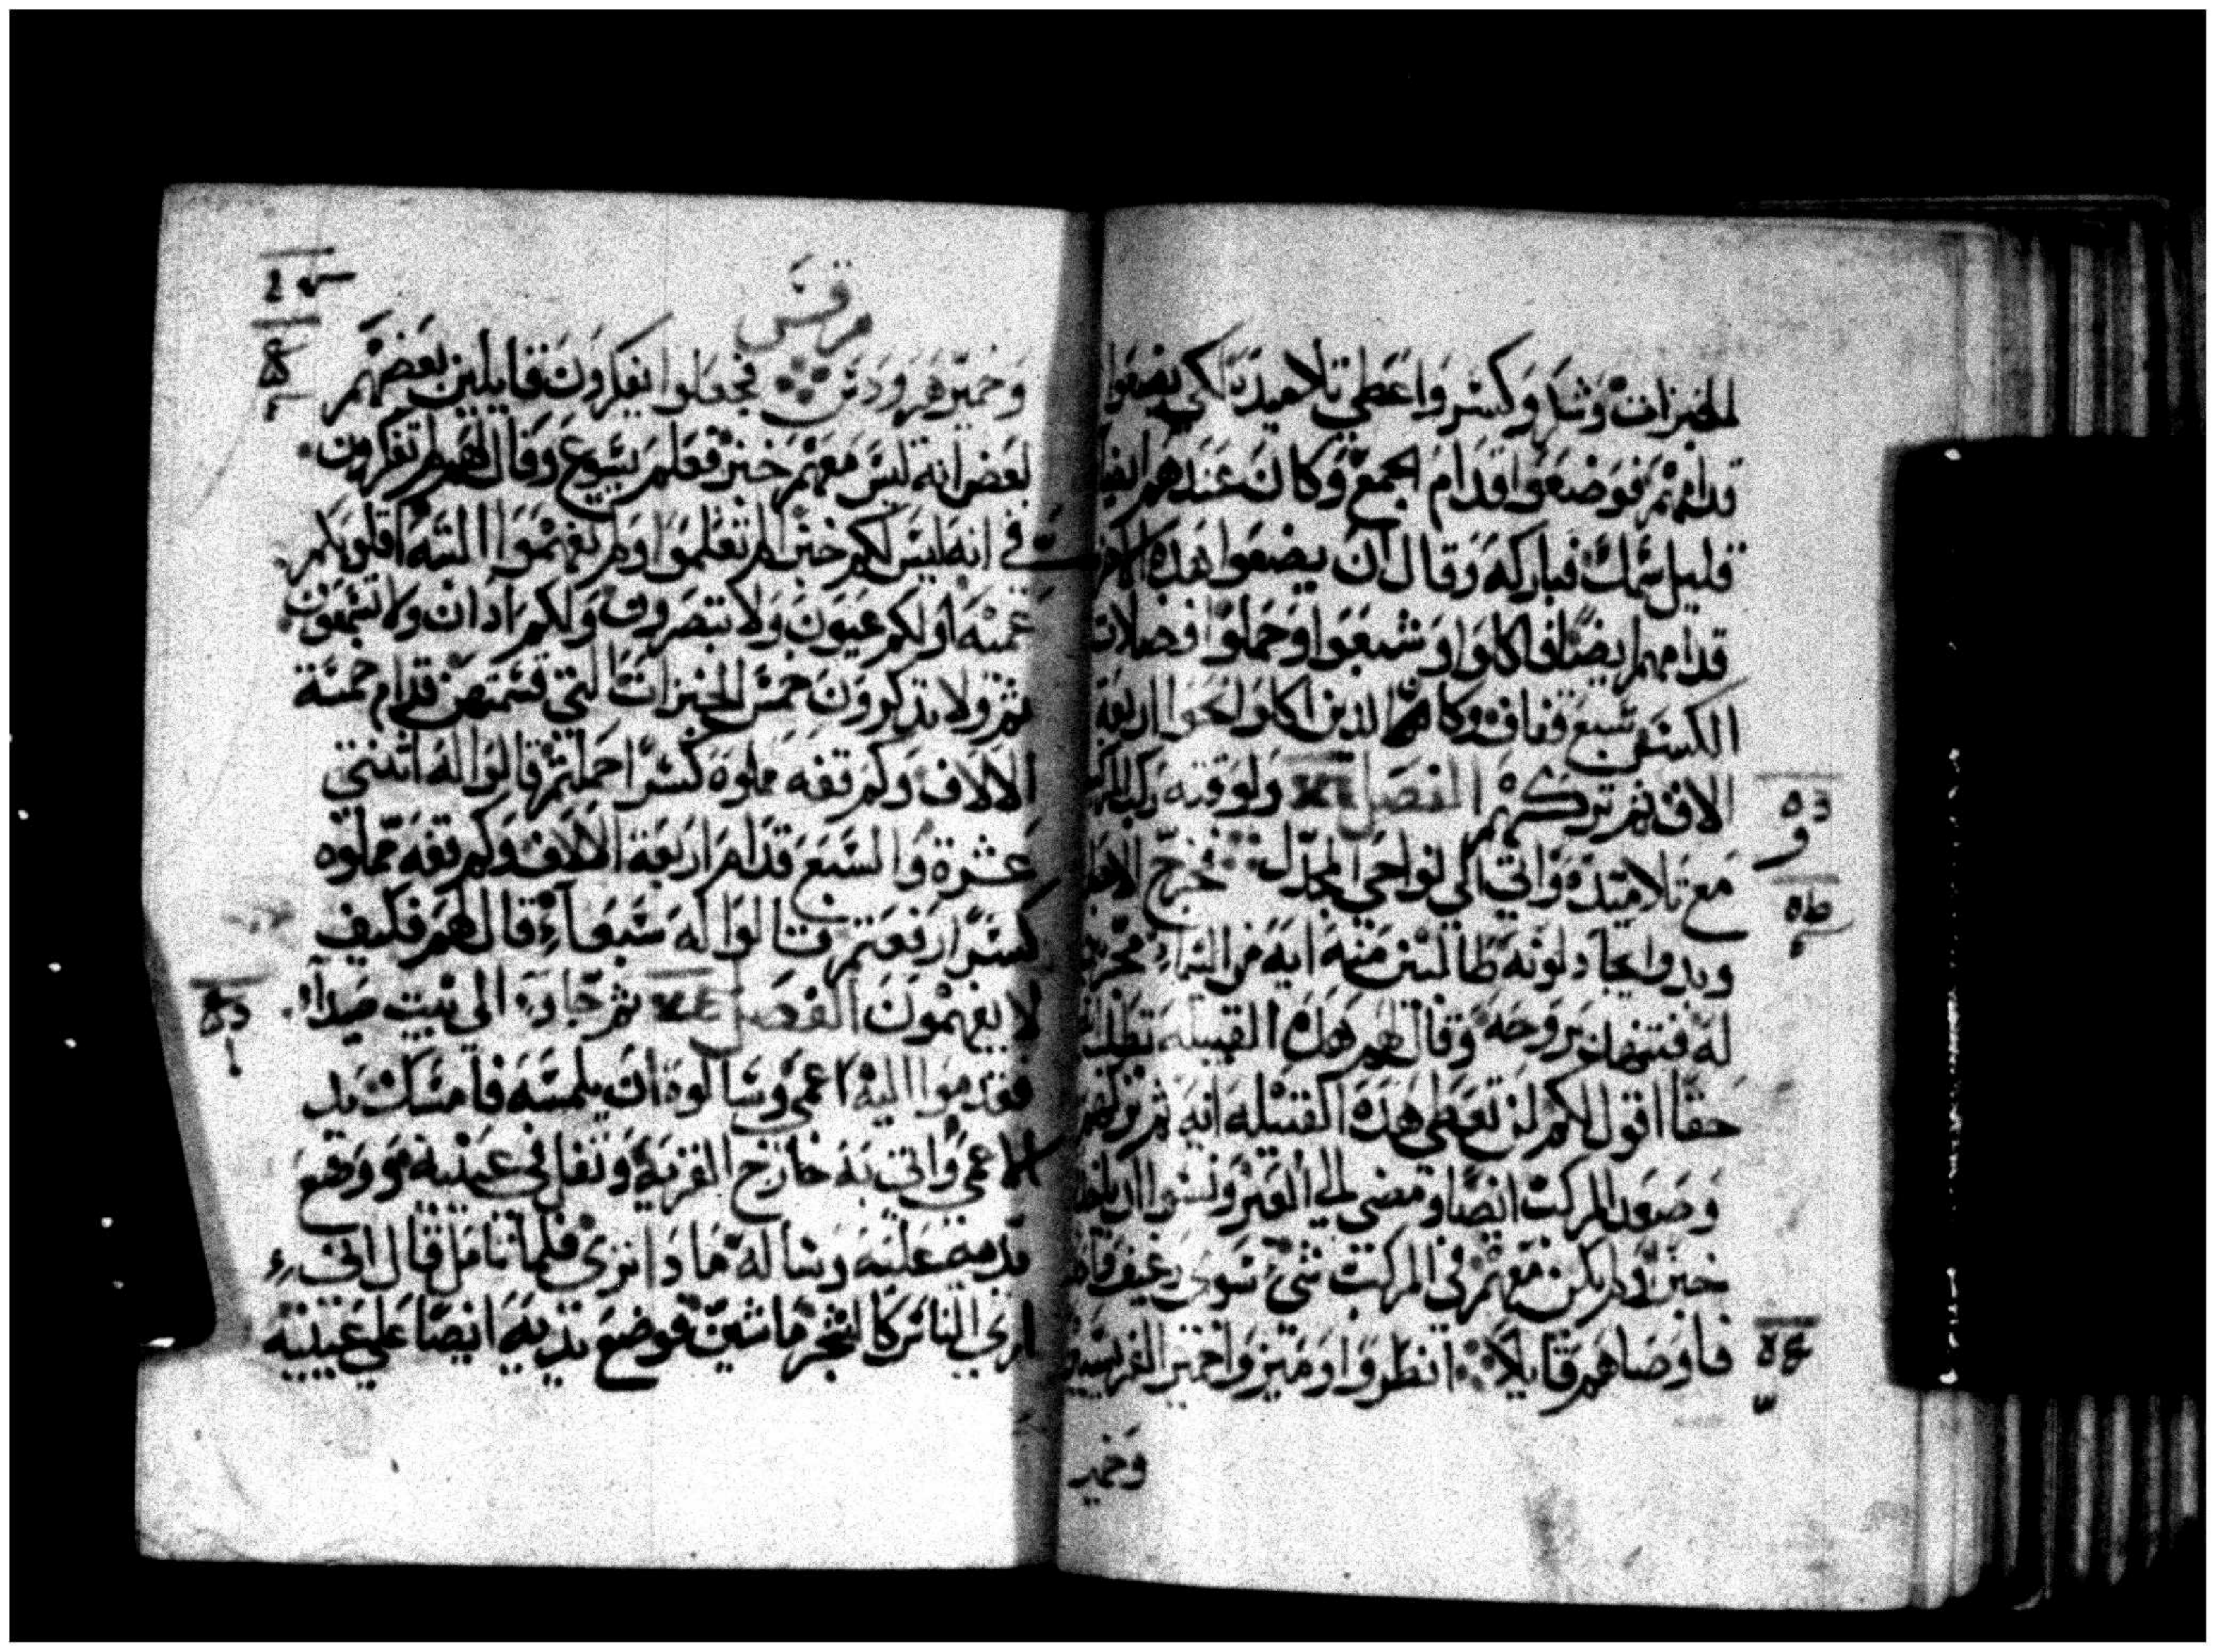 الخبزات وشكر وكسر واعطي تلاميذه لكي يضعوا
قدامهم فوضعوا قدام الجمع وكان عندهم ايضا
قليل سمك فباركه وقال ان يضعوا هذه
قدامهم ايضا فاكلوا وشبعوا وحملوا فضلات
الكسر سبع قفاف وكان الذين اكلوا نحو اربعة
الاف ثم تركهم الفصل ولوقته ركب المركب
مع تلاميذه واتي الي نواحي المجدل خرج
وبدوا يجادلونه طالبين منه ايه من السماء
له فتنهد بروحه وقال لهم هذه القبيله تطلب
حقا اقول لكم لن تعطي هذه القبيله ايه ثم تركهم
وصعد المركب ايضا ومضي الي العبر ونسوا ان ياخذوا
خبزا ولم يكن معهم في المركب شي سوي رغيف
فاوصاهم قايلا انظروا وميزوا خمير الفريسيين
وخمير
مرقس
وخمير هرودس فجعلوا يفكرون قايلين بعضهم
لبعض انه ليس معهم خبز فعلم يسوع وقال لهم لم تفكرون
في انه ليس لكم خبز الم تعلموا ولم تفهموا البته اقلوبكم
عميه اولكم عيون ولا تبصرون ولكم ادان ولا تسمعون
ثم ولا تدكرون خمس الخبزات التي قسمتهن قدام خمسة
الالاف وكم قفه مملوه كسرا حملتم قالوا له اثنتي
عشرة والسبع قدام اربعة الالاف وكم قفه مملوه
كسرا رفعتم قالوا له سبعا قال لهم فكيف
لا تفهمون الفصل ثم جا الي بيت صيدا
فقدموا اليه اعمي وسالوه ان يلمسه فامسك بيد
الاعمي واتي به خارج القريه وتفل في عينيه ووضع
يديه عليه وساله ما دا تري فلما تامل قال اني
اري الناس كالشجر ماشين فوضع يديه ايضا علي عينيه